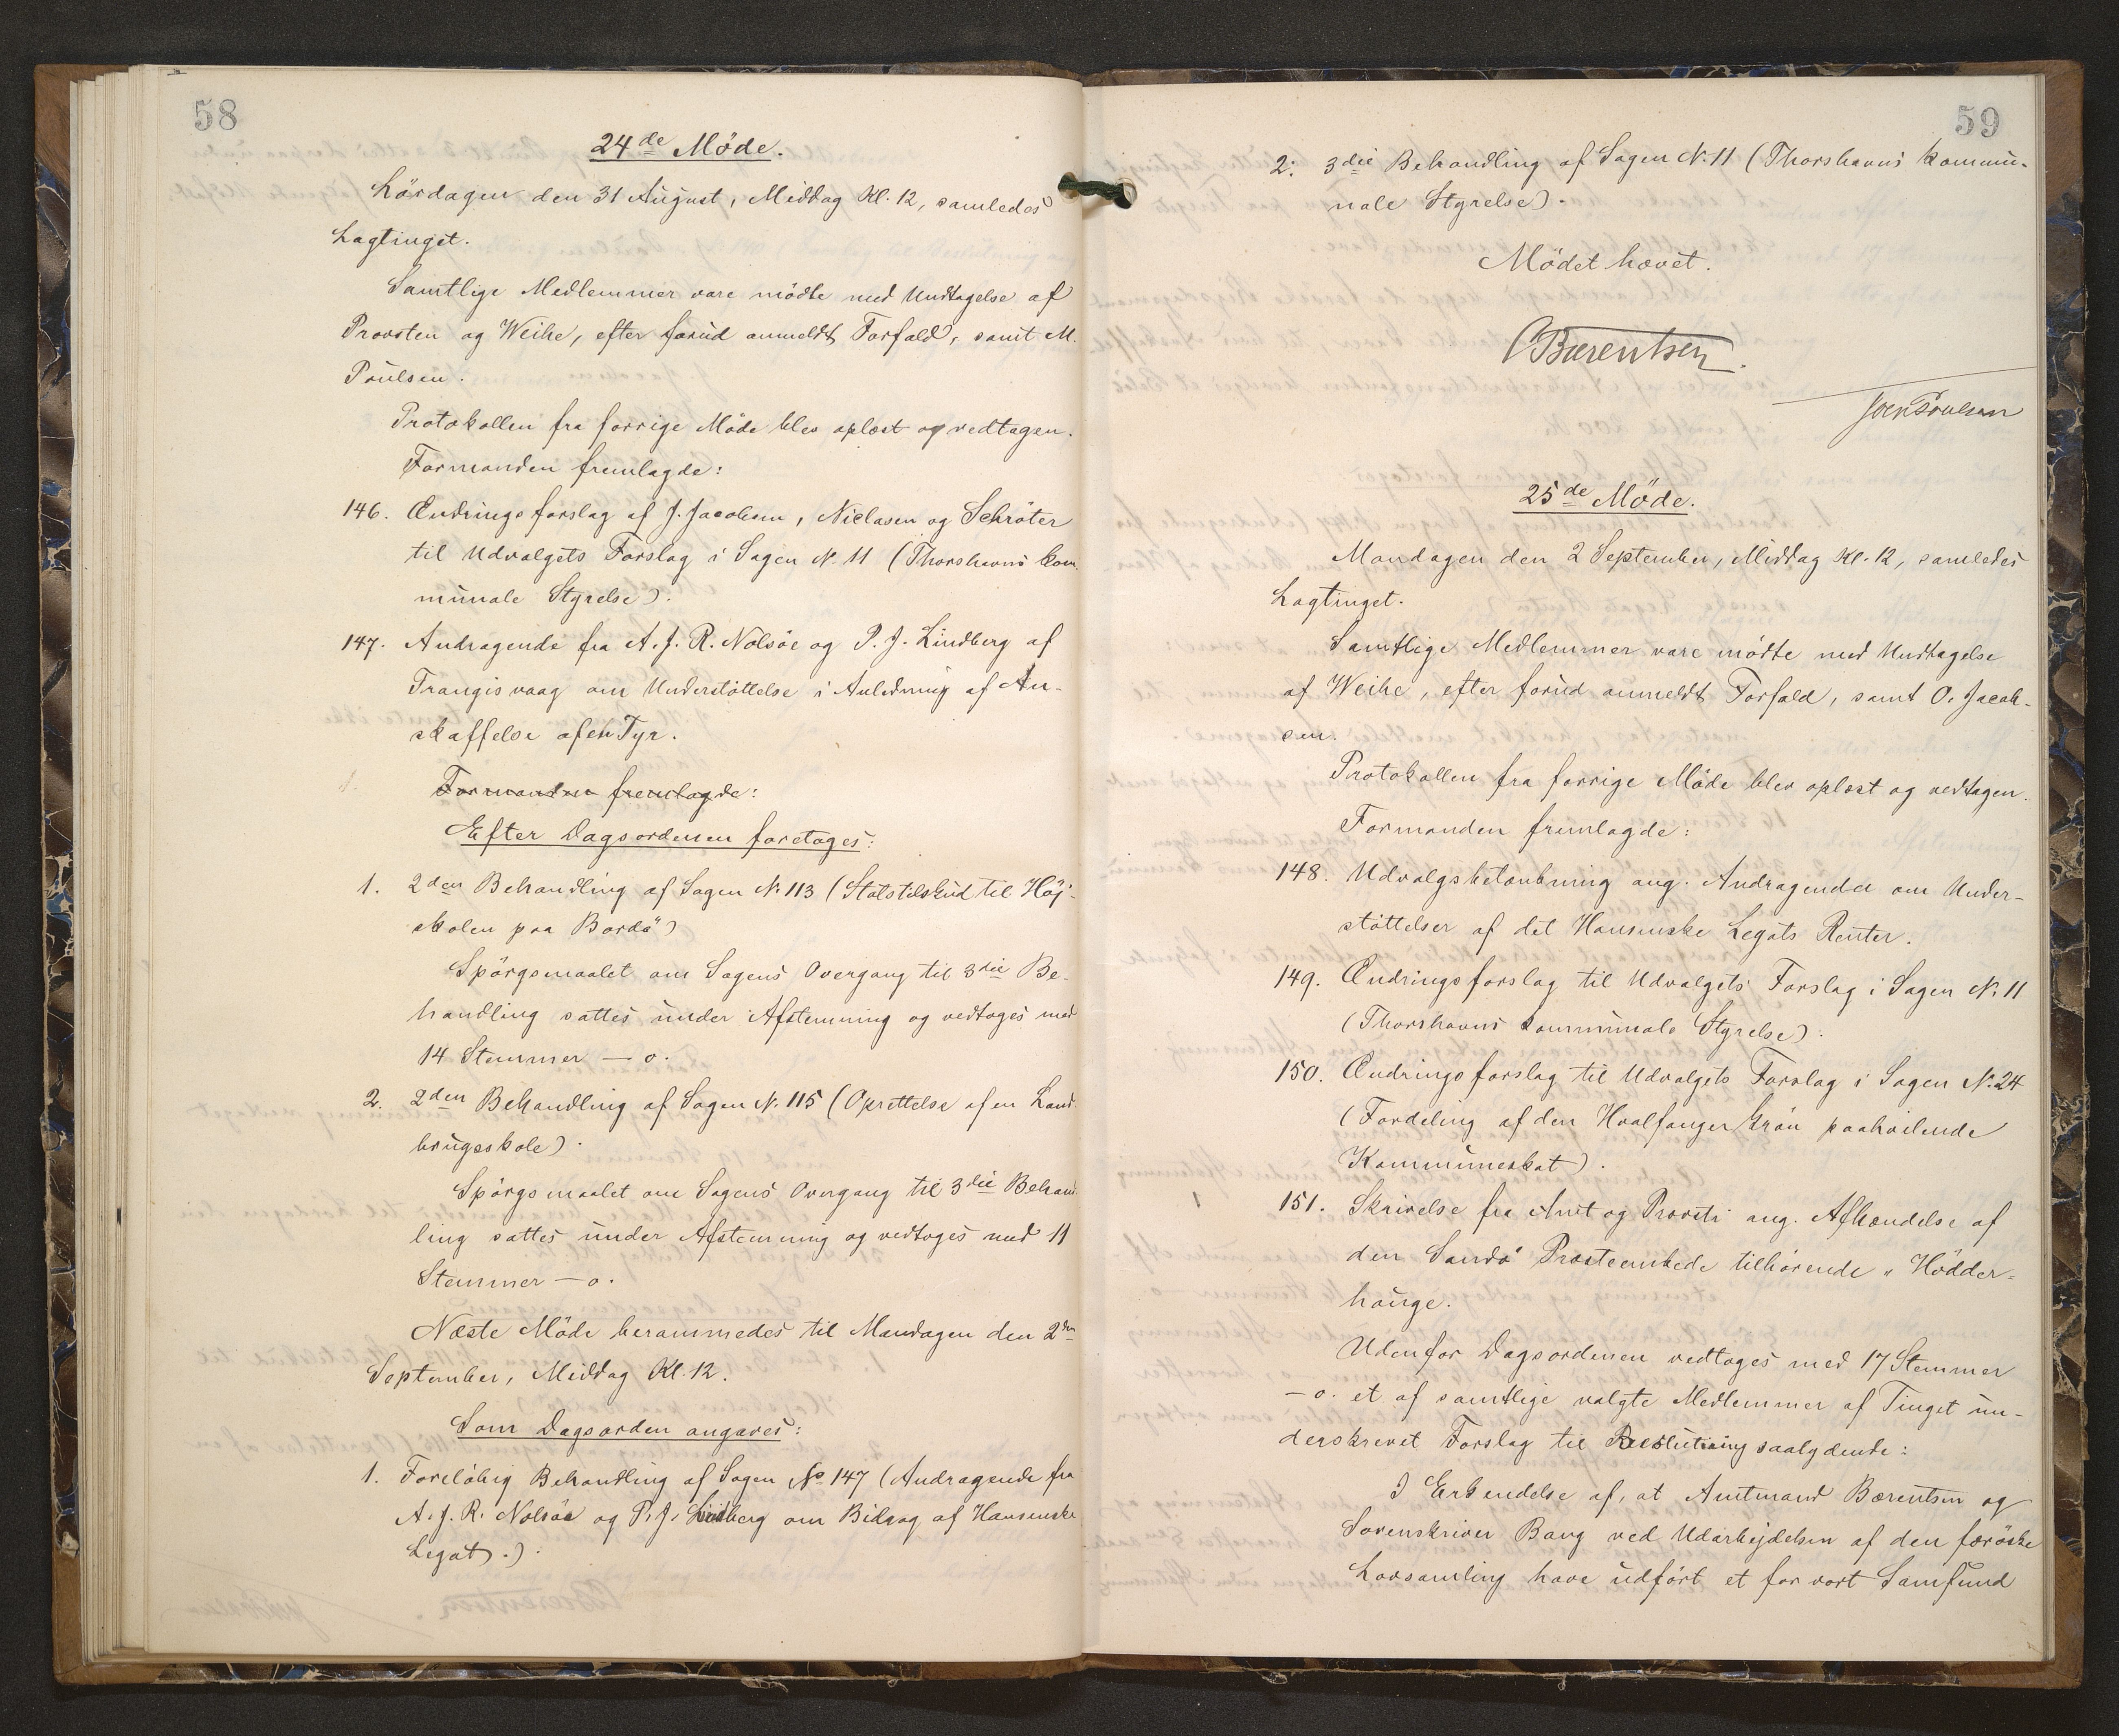 58
24de Møde.
Lørdagen den 31 August, Middag Kl. 12, samledes
Lagtinget.
Samtlige Medlemmer vare mødte med Undtagelse af
Provsten og Weihe, efter forud anmeldt Forfald, samt M.
Poulsen.
Protokollen fra forrige Møde blev oplæst og vedtagen.
Formanden fremlagde:
146. Ændringsforslag af J. Jacobsen, Niclasen og Schrøter
til Udvalgets Forslag i Sagen N. 11 (Thorshavns kom-
munale Styrelse).
147. Andragende fra A. J. R. Nolsøe og P. J. Lindberg af
Trangisvaag om Understøttelse i Anledning af An-
skaffelse af en Tyr.
Formanden fremlagde:
Efter Dagsordenen foretoges:
1. 2den Behandling af Sagen N. 113 (Statstilskud til Høj-
skolen paa Bordø)
Spørgsmaalet om Sagens Overgang til 3die Be-
handling sattes under Afstemning og vedtoges med
14 Stemmer — 0.
2. 2den Behandling af Sagen N. 115 (Oprettelse af en Land-
brugsskole).
Spørgsmaalet om Sagens Overgang til 3die Behand-
ling sattes under Afstemning og vedtoges med 11
Stemmer — 0.
Næste Møde berammedes til Mandagen den 2den
September, Middag Kl. 12.
Som Dagsorden angaves:
1. Foreløbig Behandling af Sagen No 147 (Andragende fra
A. J. R. Nolsøe og P. J. Lindberg om Bidrag af Hansenske
Legat).
59
2. 3die Behandling af Sagen N. 11 (Thorshavns kommu-
nale Styrelse).
Mødet hævet.
CBærentsen.
Joen Poulsen
25de Møde.
Mandagen den 2 September, Middag Kl. 12, samledes
Lagtinget.
Samtlige Medlemmer vare mødte med Undtagelse
af Weihe, efter forud anmeldt Forfald, samt O. Jacob-
sen.
Protokollen fra forrige Møde blev oplæst og vedtagen.
Formanden fremlagde:
148. Udvalgsbetænkning ang. Andragender om Under-
støttelser af det Hansenske Legats Renter.
149. Ændringsforslag til Udvalgets Forslag i Sagen N. 11
(Thorshavns kommunale Styrelse).
150. Ændringsforslag til Udvalgets Forslag i Sagen N. 24
(Fordeling af den Hvalfanger Grøn paahvilende
Kommuneskat).
151. Skrivelse fra Amt og Provsti ang. Afhændelse af
den Sandø Præsteembede tilhørende "Hødder-
hauge.
Udenfor Dagsordenen vedtoges med 17 Stemmer
— 0. et af samtlige valgte Medlemmer af Tinget un-
derskrevet Forslag til Beslutning saalydende:
I Erkendelse af, at Amtmand Bærentsen og
Sorenskriver Bang ved Udarbejdelsen af den færøske
Lovsamling have udført et for vort Samfund